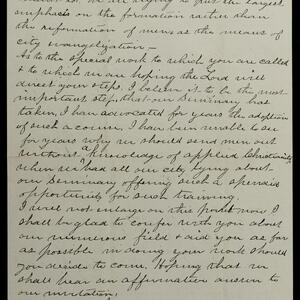 emphasis on the formation rather than
the reformation of men as the means of
city evangelization—
As to the special work to which you are called
& to which we are hoping the Lord will
direct your steps, I believe it to be the most
important step, that our Seminary has
taken, I have advocated for years the adoption
of such a course, I have been unable to see
for years why we should send men out
without a knowledge of applied Christianity
when we had all our city lying about
our Seminary offering such a splendid
opportunity for such training.
I will not enlarge on this point now I
shall be glad to confer with you about
our numerous field & aid you as far
as possible in doing your work should
you decide to come. Hoping that we
shall hear an affirmative answer to
our invitation,